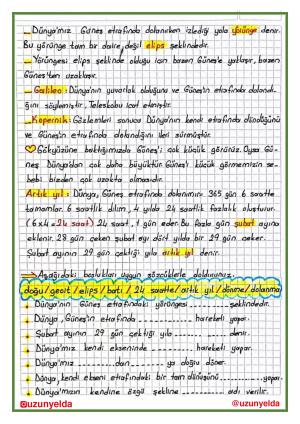 _ Dünya'mız Güneş etrafında dolanırken izlediği yola yörünge denir.
Bu yörünge tam bir daire değil elips şeklindedir.
_ Yörüngesi elips şeklinde olduğu için bazen Güneş'e yaklaşır, bazen
Güneş'ten uzaklaşır.
_ Galileo: Dünya'nın yuvarlak olduğunu ve Güneş'in etrafında dolandı-
ğını söylemiştir. Teleskobu icat etmiştir.
_ Kopernik: Gözlemleri sonucu Dünya'nın kendi etrafında döndüğünü
ve Güneş'in etrafında dolandığını ileri sürmüştür.
Gökyüzüne baktığımızda Güneş'i çok küçük görürüz. Oysa Gü-
neş Dünya'dan çok daha büyüktür. Güneş'i küçük görmemizin se-
bebi bizden çok uzakta olmasıdır.
Artık yıl: Dünya, Güneş etrafında dolanımını 365 gün 6 saatte
tamamlar. 6 saatlik dilim, 4 yılda 24 saatlik fazlalık oluşturur.
(6x4=24 saat) 24 saat, 1 gün eder. Bu fazla gün şubat ayına
eklenir. 28 gün çeken şubat ayı dört yılda bir 29 gün çeker.
Şubat ayının 29 gün çektiği yıla artık yıl denir.
_ Aşağıdaki boşlukları uygun sözcüklerle dolduralım.
doğu/geoit/elips/batı/24 saatte/artık yıl/dönme/dolanma
Dünya'nın Güneş etrafındaki yörüngesi .......... şeklindedir.
Dünya, Güneş'in etrafında .......... hareketi yapar.
Şubat ayının 29 gün çektiği yıla .......... denir.
Dünya'mız kendi ekseninde .......... hareketi yapar.
Dünya'mız ..........dan ..........ya doğru döner.
Dünya, kendi ekseni etrafındaki bir tam dönüşünü .......... yapar.
Dünya'mızın kendine özgü şekline .......... adı verilir.
@uzunyelda @uzunyelda